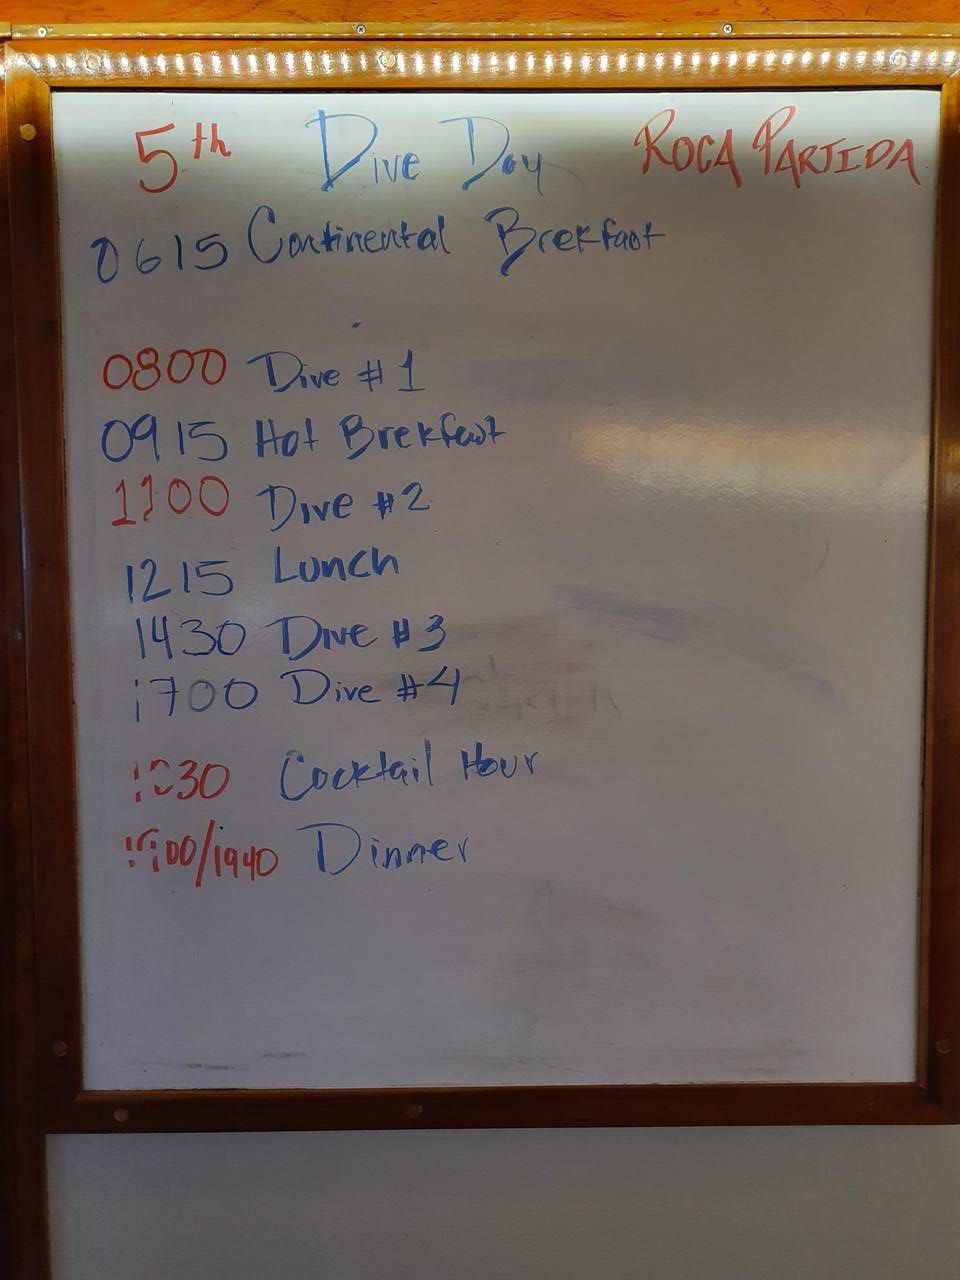 5th Dive Day ROCA PARTIDA
0615 Continental Brekfast
0800 Dive #1
0915 Hot Brekfast
1100 Dive #2
1215 Lunch
1430 Dive #3
1700 Dive #4
Cocktail Hour
Dinner